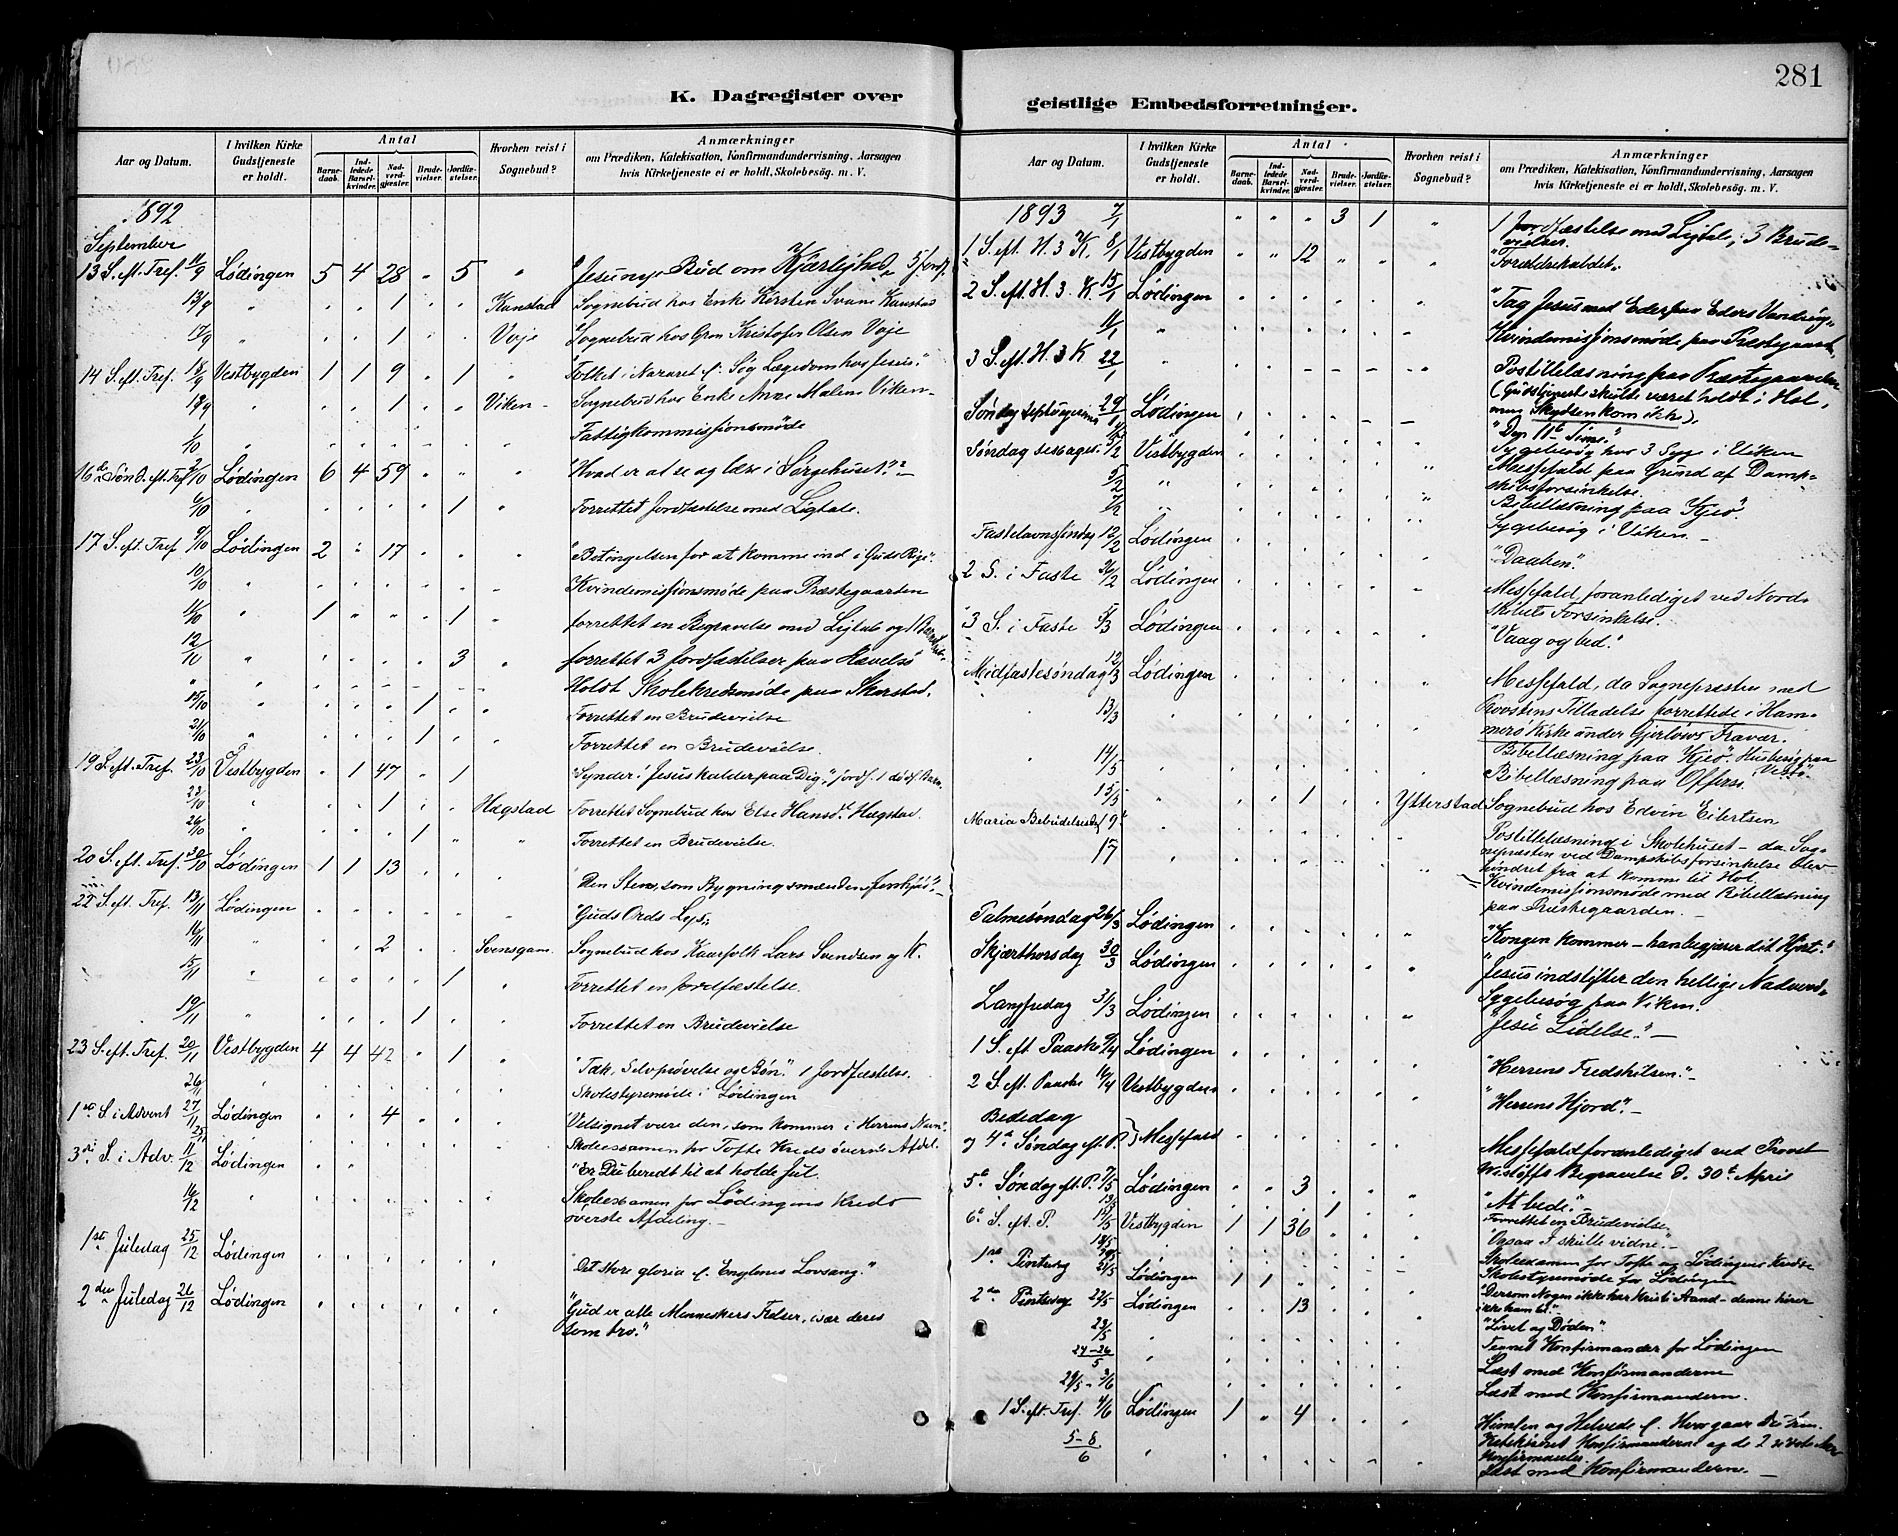 281
K. Dagregister over
geistlige Embedsforretninger.
Aar og Datum.
I hvilken Kirke Gudstjeneste er holdt.
Antal
Barnedaab.
Indledede Barselkvinder.
Nadvergjæster.
Brudevielser.
Jordfæstelser.
Hvorhen reist i Sognebud?
Anmærkninger
om Prædiken, Katekisation, Konfirmandundervisning, Aarsagen
hvis Kirketjeneste ei er holdt, Skolebesög. m. V.
1892
September
13 S. eft. Tref. 11/9 Lødingen 5 4 28 " 5 " "Jesu nye Bud om Kjærlighed" 5 Jordf.
13/9 " 1 Kanstad Sognebud hos Enke Kirsten Svane Kanstad
17/9 " 1 Vaje Sognebud hos Grm Kristofer Olsen Vaje
14 S. eft. Tref. 18/9 Vestbygden 1 1 9 " 1 " "Folket i Nazaret f. Søg Lægedom hos Jesus."
18/9 " 1 Viken Sognebud hos Enke Anne Malene Viken
1/10 " Fattigkommissionsmøde
16de Sønd. eft. Tref. 2/10 Lødingen 6 4 59 " " " "Hvad er at se og lære i Sørgehuset?"
6/10 " 1 Forrettet Jordfæstelse med Ligtale.
17 S. eft. Tref. 9/10 Lødingen 2 " 17 " " " "Betingelsen for at komme ind i Guds Rige".
10/10 Kvindemissionsmøde paa Præstegaarden
11/10 1 " " " 1 forrettet en Begravelse med Ligtale og 1
12/10 " 3 " forrettet 3 Jordfæstelser paa
" Holdt Skolekredsmøde paa Skarstad.
15/10 " 1 Forrettet en Brudevielse
21/10 " 1 Forrettet en Brudevielse.
19 S. eft. Tref. 23/10 Vestbygden " 1 47 " 1 "Synder! Jesus kalder paa Dig", Jordf. 1 dødf. Barn
23/10 " 1 Hægstad Forrettet Sognebud hos Else Hansd. Hægstad.
26/10 " 1 " Forrettet en Brudevielse.
20 S. eft. Tref. 30/10 Lødingen 1 1 13 "Den Sten, som Bygningsmændene forskjød"
22 S. eft. Tref. 13/11 Lødingen " "Guds Ords Lys"
" 2 Svensgam. Sognebud hos Kaarfolk Lars Svendsen og K.
15/11 " 1 Forrettet en Jordfæstelse.
19/11 " 1 Forrettet en Brudevielse
23 S. eft. Tref. 20/11 Vestbygden 4 4 42 " 1 "Tak, Selvprøvelse og Bøn." 1 Jordfæstelse.
26/11 " Skolestyremøde i Lødingen
1ste S. i Advent 27/11 Lødingen 4 "Velsignet være den, som kommer i Herrens Navn".
25/11 Skoleexamen for Tofte Kreds øverste Afdel.
3die S. i Adv. 11/12 Lødingen "Er Du beredt til at holde Jul.
16/12 " Skoleexamen for Lødingens Kreds
øverste Afdeling.
1ste Juledag 25/12 Lødingen "Det store gloria f. Englenes Lovsang."
2den Juledag 26/12 Lødingen "Gud er alle Menneskers Frelser, især deres
som tro."
Aar og Datum.
I hvilken Kirke Gudstjeneste er holdt.
Antal
Barnedaab.
Indledede Barselkvinder.
Nadvergjæster.
Brudevielser.
Jordfæstelser.
Hvorhen reist i Sognebud?
Anmærkninger
om Prædiken, Katekisation, Konfirmandundervisning, Aarsagen
hvis Kirketjeneste ei er holdt, Skolebesög. m. V.
1893 7/1 " " " 3 1 " 1 Jordfæstelse med Ligtale; 3 Brude-
vielser.
1 S. eft. H. 3 K. 8/1 Vestbygden " " 12 "Forældrekaldet".
2 S. eft. H. 3. K 15/1 Lødingen "Tag Jesus med Eder paa Eders Vandring"
" Kvindemissionsmøde paa Præstegaarden
3 S. eft H. 3 K 22/1 " Postillelæsning paa Præstegaarden
(Gudstjeneste skulde været holdt i Hol,
men Skydsen kom ikke).
Søndag Septuagesima 29/1 Lødingen "Den 11te Time."
Sygebesøg hos 3 Syg i Viken
Søndag sexages. 5/2 Vestbygden Messefald paa Grund af Damp-
skibsforsinkelse.
5/2 " Bibellæsning paa Kjeø.
7/2 " Sygebesøg i Viken.
Fastelavnssøndag 12/2 Lødingen "Daaben".
2 S. i Faste 26/2 Lødingen Messefald, foranlediget ved Nord-
skibets Forsinkelse.
3 S. i Faste 5/3 Lødingen "Vaag og bed".
Midfastesøndag 12/3 Lødingen Messefald, da Sognepræsten med
Provstens Tilladelse forrettede i Ham-
merø Kirke under Gjerløws Fravær.
13/3 " Bibellæsning paa Kjeø. Husbesøg paa
14/3 " Bibellæsning paa Offersø.
15/3 " 1 Ytterstad Sognebud hos Edvin Eilertsen
Maria Bebudelsesdag 19 " Postillelæsning i Skolehuset - da Sog-
nepræsten ved Dampskibsforsinkelse blev
hindret fra at komme til Hol.
17 " Kvindemissionsmøde med Bibellæsning
paa Præstegaarden.
Palmesøndag 26/3 Lødingen "Kongen kommer - han begjærer dit Hjerte."
Skjærthorsdag 30/3 Lødingen "Jesus indstifter den hellige Nadverd"
Sygebesøg paa Viken.
Langfredag 31/3 Lødingen "Jesu Lidelse."
1 S. eft. Paaske 9/4 Lødingen "Herrens Fredshilsen."
2 S. eft. Paaske 16/4 Vestbygden "Herrens Hjord".
Bededag
og 4de Søndag eft. P. } Messefald Messefald foranlediget ved Provst
Begravelse d. 30te April
5te Søndag eft. P. 7/5 Lødingen " " 3 "At bede."
13/5 1 Forrettet en Brudevielse.
6te S. eft. P. Vestbygden 1 1 36 "Ogsaa I skulle vidne."
Skoleexamen for Tofte og Lødingens Kredse
Skolestyremøde for Lødingen
1ste Pintsedag 21/5 Lødingen 1 1 "Dersom Nogen ikke har Kristi Aand - denne hører
ikke ham til."
2den Pintsedag 22/5 Lødingen 13 "Livet og Døden".
23/5 " Tegnet Konfirmander for Lødingen
24-26/5 " Læst med Konfirmanderne
29/5 - 3/6 Læst med Konfirmanderne.
1 S. eft. Tref. 4/6 Lødingen 1 " 4 Himlen og Helvede f. Hvor gaar Du hen.
Katekiseret Konfirmanderne og de 2 sidste Aars
Konfirmander.
5-8/6 " Læst med Konfirmanderne.